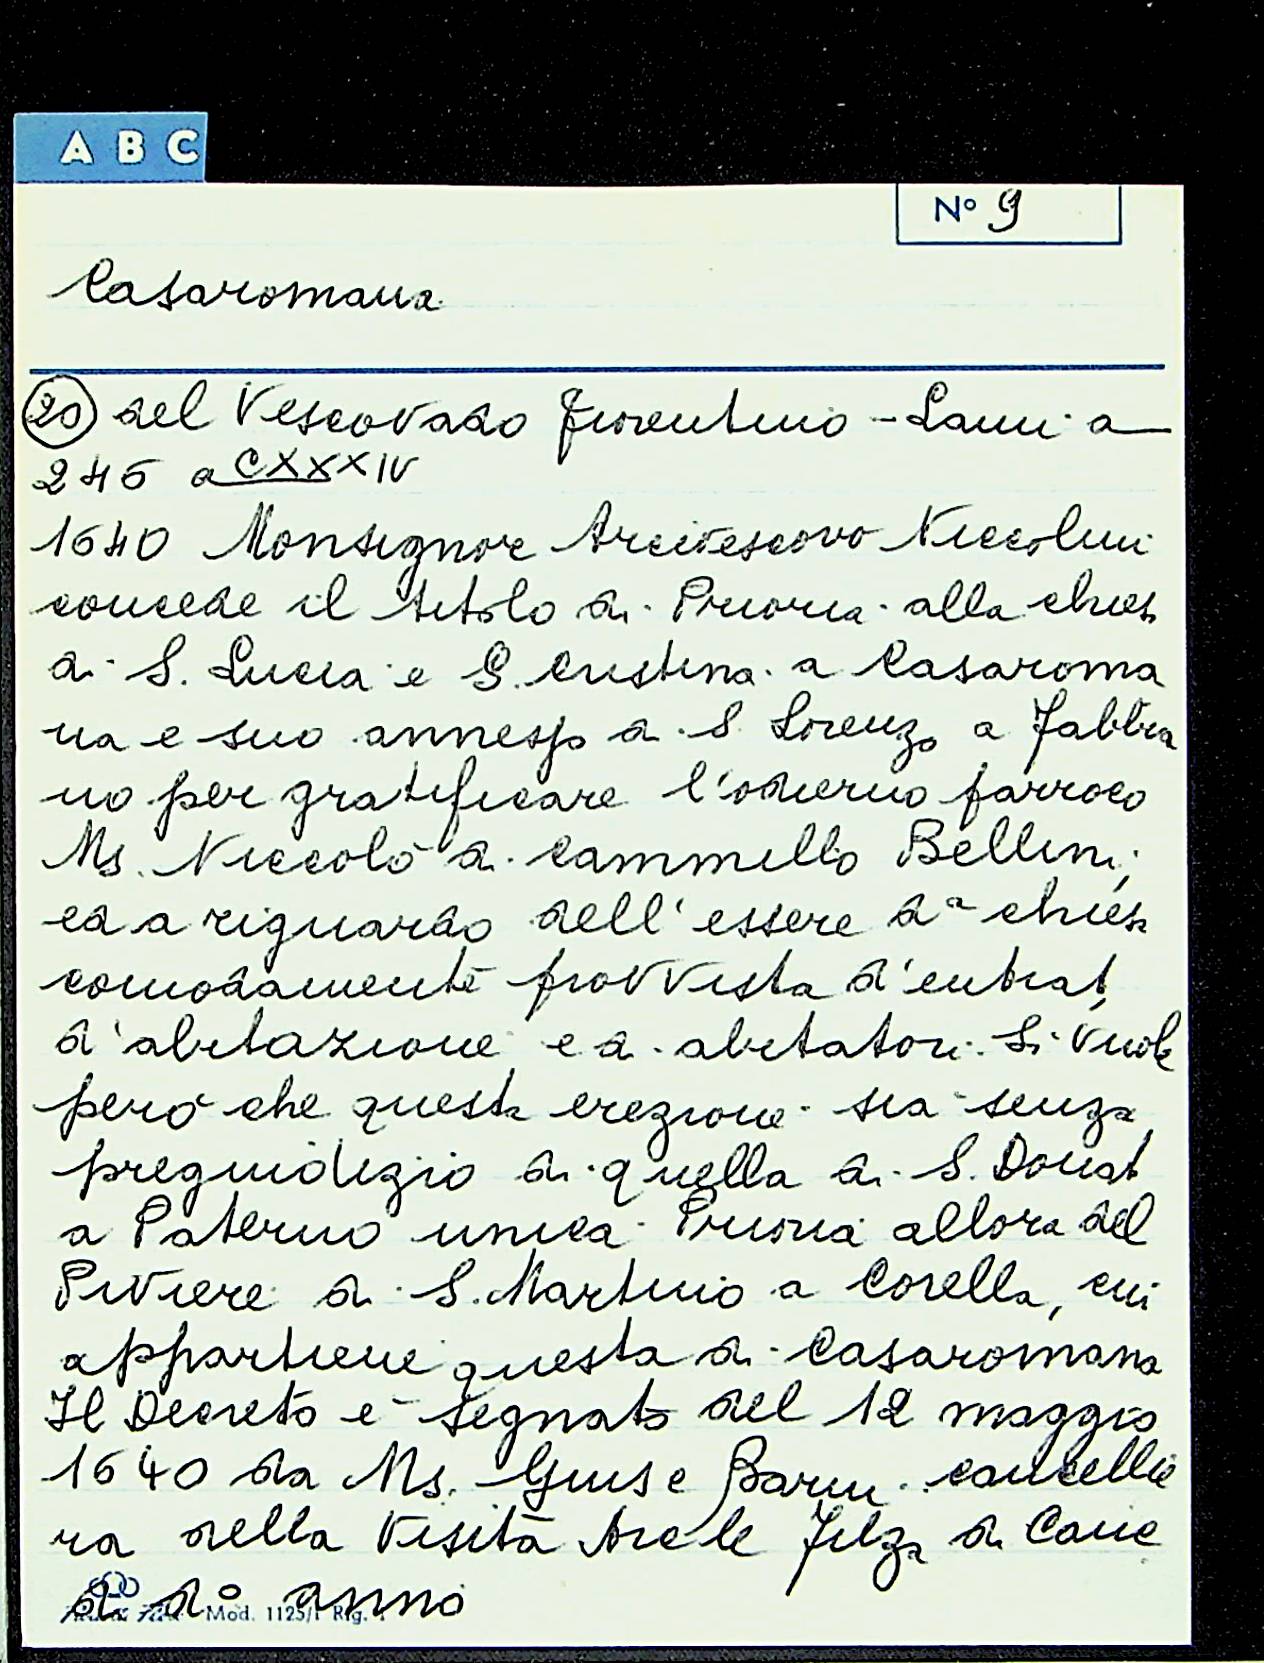 A B C
N° 9
Casaromana
20 del Vescovado fiorentino - Lami a
245 a CXXXIV
1640 Monsignor Arcivescovo Niccolini
concede il titolo di Prioria alla chies
di S. Lucia e S. Cristina a Casaroma
na e suo annesso di S Lorenzo a Fabbria
no per gratificare l'odierno parroco
Ms. Niccolò di Cammillo Bellini;
ed a riguardo dell'essere dª chiesa
comodamente provvista d'entrat
d'abitazione e di abitatori. Si vuole
però che questa erezione sia senza
pregiudizio di quella di S. Donat
a Paterno unica Prioria allora del
Piviere di S. Martino a Corella, cui
appartiene questa di Casaromana
Il Decreto è segnato del 12 maggio
1640 da Ms. Gius e Barni cancellie
ra della Visità Arc le Filza di Canc
di d° anno
Mod. 1125/1 Rig.